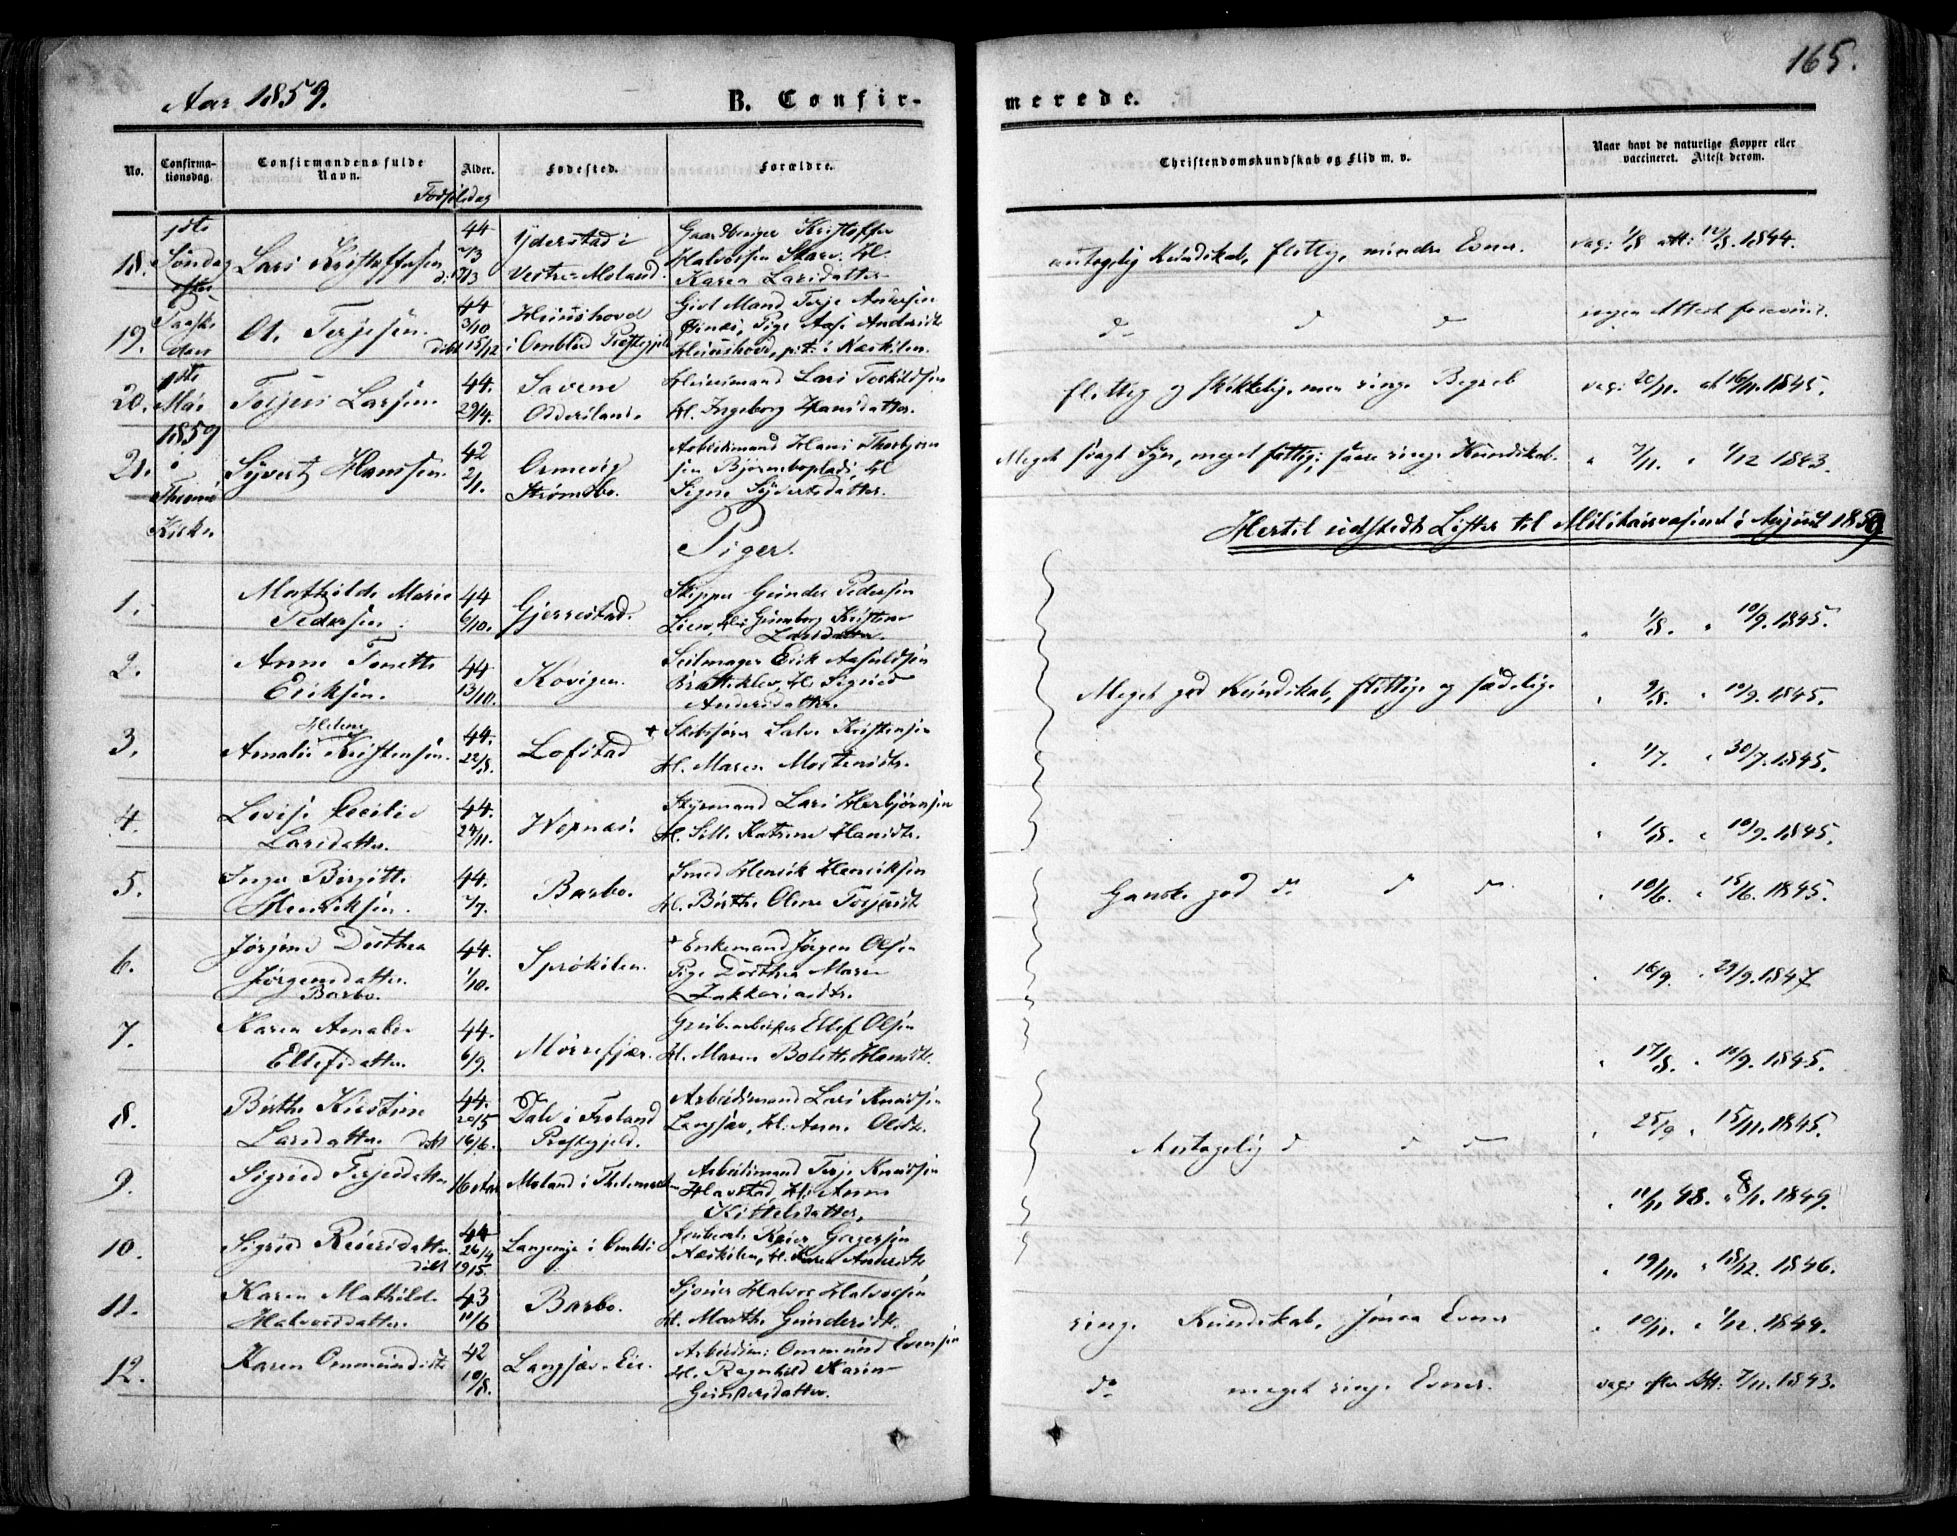 Aar 1859.
B. Confir-
merede.
165.
No.
Confirma-
tionsdag.
Confirmandens fulde
Navn.
Alder.
Fødselsdag
Fødested.
Forældre.
Christendomskundskab og Flid m. v.
Naar havt de naturlige Kopper eller
vaccineret. Attest derom.
1ste
Søndag
efter
Paaske
den
1ste
Mai
1859
i
Kirke
18. Lars Kristoffersen 44
d: 17/3
Yderstad i
Vestre Moland.
Gaardbruger Kristoffer
Halvorsen Skarv. H.
Karen Larsdatter
antagelig Kundskab, flittig, mindre Evner.
vac: 1/8 att: 12/8. 1844.
19. Ol. Terjesen. 44
3/10
døbt 15/12
i Omblid Præstegjeld
Gift Mand Terje Andersen
Pige Aase Andersdt.
do do do
ingen Attest forevist.
20. Larsen. 44.
29/4.
Savene
Odderslands.
Huusmand Lars Torkildsen
H. Ingeborg Hansdatter.
flittig og skikkelig, men ringe Begreb
vac: 20/11. at 16/11. 1845.
21. Syvert Hanssen. 42
2/1.
Ormevig
Strømsbo.
Arbeidsmand Hans Thorbjørn
sen Bjørneboplads H.
Signe Syvertsdatter.
Meget svagt Syn, meget flittig; saare ringe Kundskab.
" 7/11. " 1/12 1843.
Hertil udstedt Lister til Militairvæsenet i August 1859
Piger.
1. Mathilde Marie
Pedersen.
44
6/10.
Gjerrestad.
Skipper Gunder Pedersen
Lien, H.
Larsdatter.
" 1/8. " 10/9. 1845.
2. Anne Tonette
Eriksen.
44
13/10.
Kovigen.
Seilmager Erik Aasuldsen
Bratteklev, H. Sigrid
Andersdatter.
Meget god Kundskab, flittige og sædelige
" 9/8. " 10/9. 1845.
3. Amalie Helene Kristensen.
44.
22/8.
Lofstad
+ Skibsfører Salve Kristensen
H. Maren Mortensdtr.
" 1/7. " 30/7. 1845.
4. Lovise Cecilie
Larsdatter.
44.
24/11.
Styrmand Lars Herbjørnsen
H. Sille Katrine Hansdtr.
" 1/8. " 10/9. 1845.
5. Inger Birgitte
Henriksen.
44.
2/7.
Barbo.
Smed Henrik Henriksen
H. Birthe Oline Torjusdt
Ganske god do do do
" 10/6. " 15/6. 1845.
6. Jørgine Dorthea
Jørgensdatter.
Barbo.
44.
1/10.
Sprøkilen.
+ Enkemand Jørgen Olsen
Pige Dorthea Maren
Zakkariasdtr.
" 16/9. " 29/9. 1847
7. Karen Amalie
Ellefsdatter.
44.
6/9.
Mørrefjær.
Grubearbeider Ellef Olsen
H. Maren Bolette Hansdtr.
" 17/8. " 10/9. 1845.
8. Birthe Kirstine
Larsdatter. døbt
44.
20/5
16/6.
Dale i Froland
Præstegjeld.
Arbeidsmand Lars Knudsen
Langsæv, H. Anne Olsdtr.
Antagelig do do do
" 25/9 " 15/11. 1845.
9. Sigrid Terjesdatter
16 Aar
Moland i Thelemarken
Arbeidsmand Terje Knudsen
Havstad, H. Anne
Kittelsdatter.
" 11/1 48. " 8/1. 1849.
10. Sigrid Reiersdatter.
døbt
44
26/4
19/5.
Langemyr i Ombli
Grubearb. Reier Gregersen
Næskilen, H. Karen Andersdt.
" 19/11. " 18/12. 1846.
11. Karen Mathilde
Halvorsdatter.
43
11/6
Barbo.
Sjouer Halvor Halvorsen
H. Marthe Gundersdt.
ringe Kundskab, smaa Evner
" 10/11. " 1/12. 1844.
12. Karen Ommundsdt.
42
10/8.
Langsæv. Eie.
Arbeidsm: Ommund Evensen
H. Ragnhild Karine
Gundersdatter.
do meget ringe Evner.
vac: efter Att: 7/11. 1843.